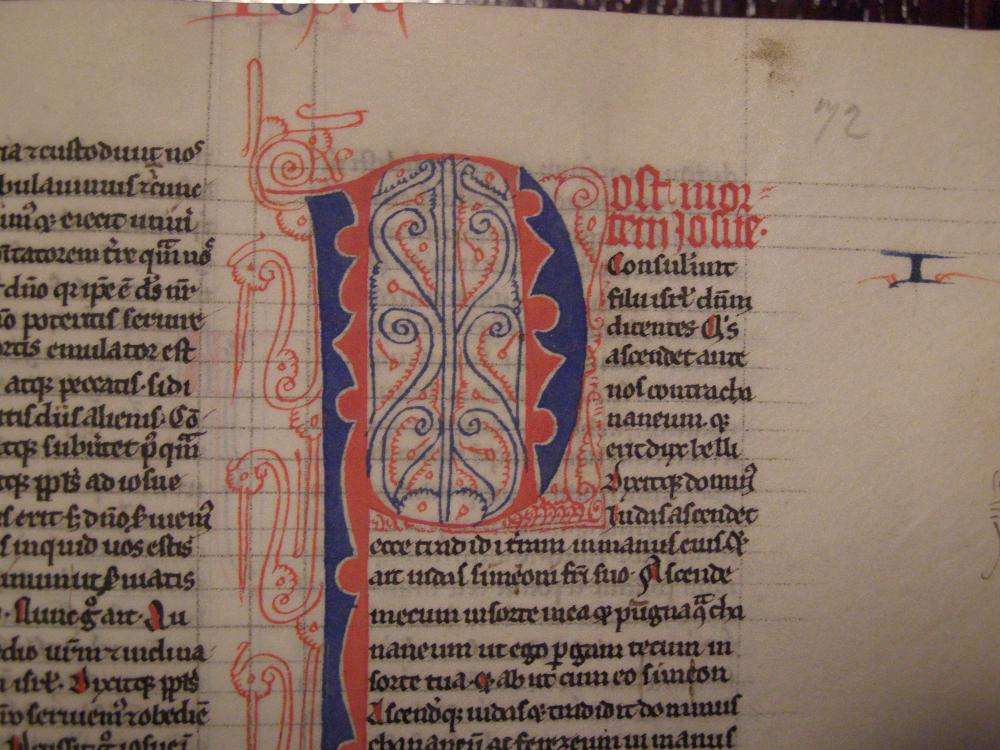 72
I
P
ost mor
tem Josue.
Consulunt
filii isrl' dnm
dicentes Q's
ascendet ante
nos contra cha
naneum. &
erit dux belli
Dixitq; domin'
Judas ascendet
ecce tradidi terram in manus eius. Et
ait iudas simeoni fri suo. Ascende
mecum in sorte mea & pugna qa cha
naneum ut ego pgam tecum in
sorte tua. & abiit cum eo simeon
Ascendq; iudas & tradidit dominus
chananeu ac ferezeum in manus
ia & custodiuit nos
bulauimus & cunc
eiecit
tatorem tre qm nos
dno qr ipe e ds nr
potentis seruire
ortis emulator est
atq; peccatis. si di
tis diis alienis. Co
itq; subuertet pqm
itq; ppls ad iosue
s erit s; dno seruiem'
s inquid uos estis
. Nunc g ait. Au
dio urm & inclina
isrl'. Dixitq; ppls
o seruiem' & obedie